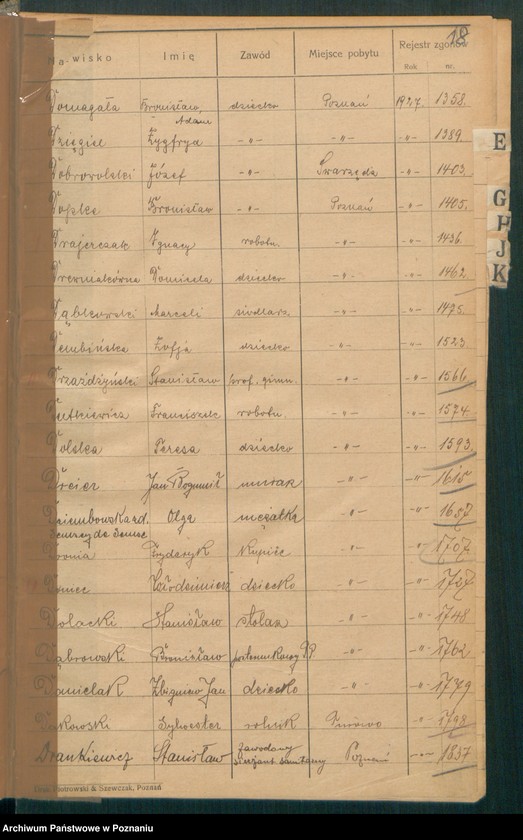 18
Nazwisko Imię Zawód Miejsce pobytu Rejestr zgonów
Rok nr.
Domagała Bronisław, Adam dziecko Poznań 1927. 1358.
Dzięgiel Zygfryd -"- -"- -"- 1389.
Dobrowolski Józef -"- Swarzędz -"- 1403.
Dopka Bronisław -"- Poznań -"- 1405.
Drajerczak Ignacy robotn. -"- -"- 1436.
Domicela dziecko -"- -"- 1462.
Marceli siodlarz -"- -"- 1495.
Dembińska Zofja dziecko -"- -"- 1523
Drzażdżyński Stanisław prof. gimn. -"- -"- 1566
Dutkiewicz Franciszek robotn. -"- -"- 1574.
Dolska Teresa dziecko -"- -"- 1593.
Dreier Jan Bogumił murarz -"- -"- 1615
Dziembowska zd. Olga mężatka -"- -"- 1687
Fryderyk kupiec -"- -"- 1707
Włodzimierz dziecko -"- -"- 1727
Dolacki Stanisław stolarz -"- -"- 1748
Dąbrowski Bronisław posterunkowy P.P. -"- -"- 1762
Danielak Zbigniew Jan dziecko -"- -"- 1779
Sylwester rolnik -"- 1798
Drankiewicz Stanisław zawodowy sierżant sanitarny Poznań -"- 1837
Druk Piotrowski & Szewczak, Poznań
E
G
H
J
K
Archiwum Państwowe w Poznaniu
szukajwarchiwach.gov.pl